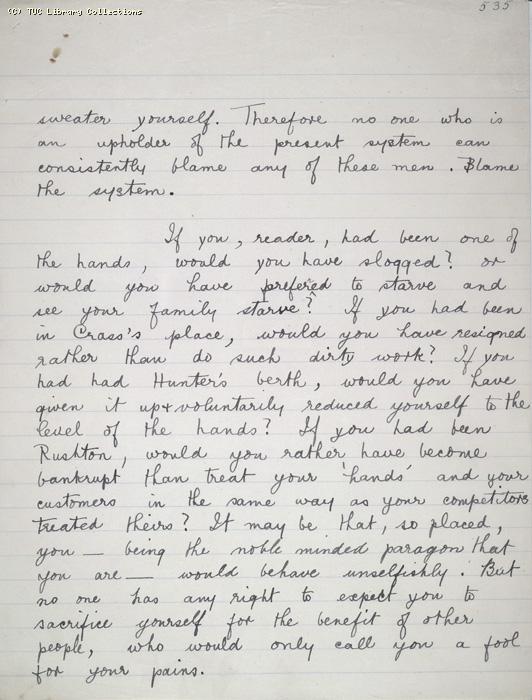 (C) TUC Library Collections
535
sweater yourself. Therefore no one who is
an upholder of the present system can
consistently blame any of these men. Blame
the system.
If you, reader, had been one of
the hands, would you have slogged? or
would you have prefered to starve and
see your family starve? If you had been
in Crass's place, would you have resigned
rather than do such dirty work? If you
had had Hunter's berth, would you have
given it up & voluntarily reduced yourself to the
level of the hands? If you had been
Rushton, would you rather have become
bankrupt than treat your 'hands' and your
customers in the same way as your competitors
treated theirs? It may be that, so placed,
you — being the noble minded paragon that
you are — would behave unselfishly. But
no one has any right to expect you to
sacrifice yourself for the benefit of other
people, who would only call you a fool
for your pains.